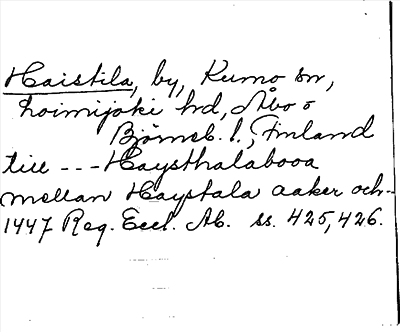 Haistila, by, Kumo sn,
Loimijoki hd, Åbo o
Björneb. l., Finland
till --- Haysthalabooa
mellan Haystala aaker och--
1447 Reg. Eccl. Ab. ss. 425, 426.